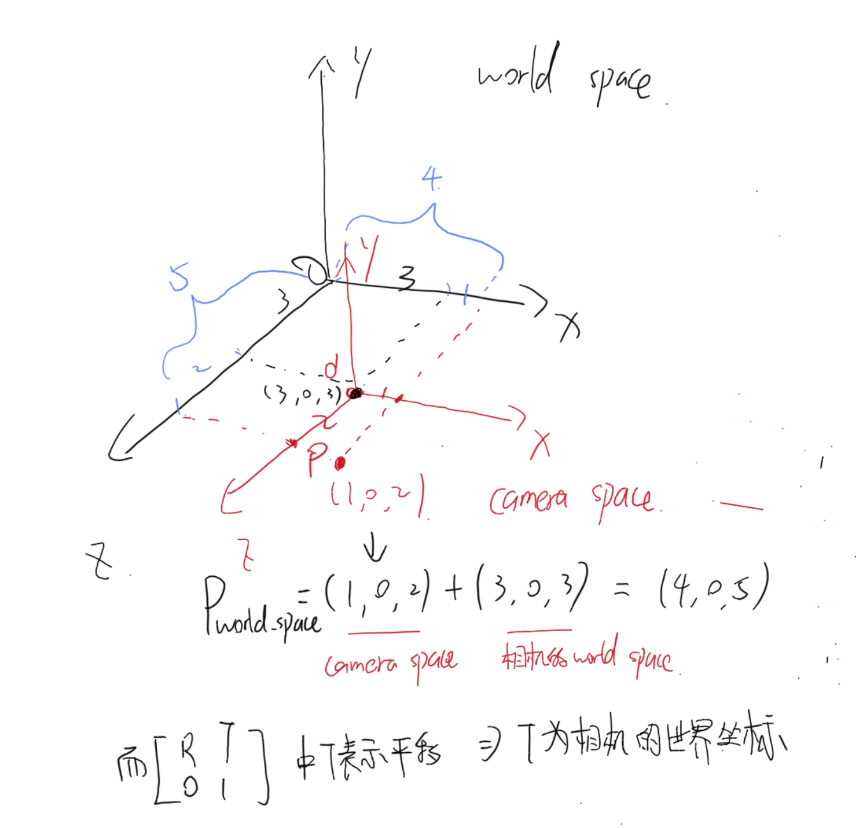 Y
world space
4
5
O
3
3
Y
X
2
d
(3,0,3)
2
X
P
(1,0,2)
camera space
Z
Z
↓
P world_space = (1,0,2) + (3,0,3) = (4,0,5)
camera space 相机的world space
而[R T
0 1] 中T表示平移 ⇒ T为相机的世界坐标